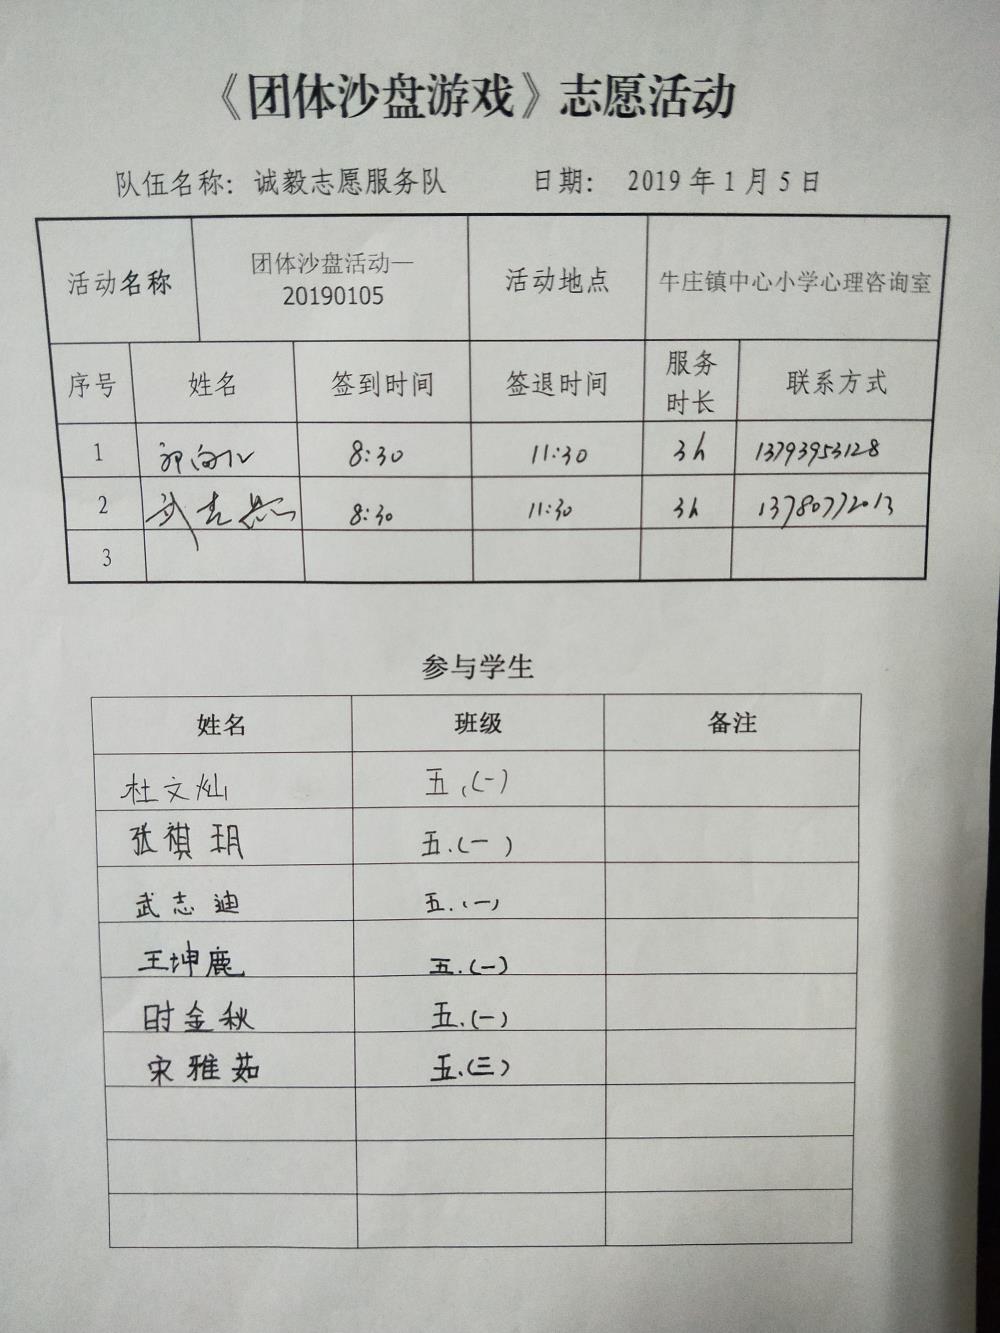 《团体沙盘游戏》志愿活动
队伍名称：诚毅志愿服务队 日期： 2019 年 1 月 5 日
活动名称 团体沙盘活动— 20190105 活动地点 牛庄镇中心小学心理咨询室
序号 姓名 签到时间 签退时间 服务时长 联系方式
1 8:30 11:30 3h 13793953128
2 8:30 11:30 3h 13780772013
3
参与学生
姓名 班级 备注
杜文灿 五.(一)
张祺玥 五.(一)
武志迪 五.(一)
王坤鹿 五.(一)
时金秋 五.(一)
宋雅茹 五.(三)